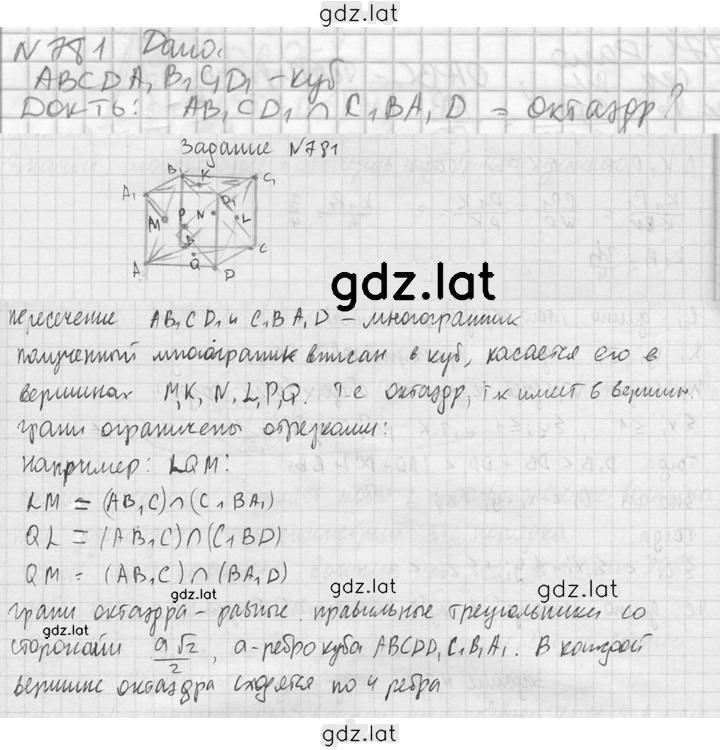 gdz.lat
N781 Дано:
ABCDA₁B₁C₁D₁ - куб
Док-ть: AB₁CD₁ ∩ C₁BA₁D = октаэдр?
Задание N781
B₁ K C₁
A₁ D₁
M P N L
B C
A Q D
gdz.lat
пересечение AB₁CD₁ и C₁BA₁D - многогранник
полученный многогранник вписан в куб, касается его в
вершинах M,K,N,L,P,Q. Т.е октаэдр, т.к имеет 6 вершин.
грани ограничены отрезками:
например: LQM:
LM = (AB₁C)∩(C₁BA₁)
QL = (AB₁C)∩(C₁BD)
QM = (AB₁C)∩(BA₁D)
gdz.lat gdz.lat
грани октаэдра - равные правильные треугольники со
сторонами a√2/2, a-ребро куба ABCDD₁C₁B₁A₁. В каждой
gdz.lat gdz.lat
вершине октаэдра сходятся по 4 ребра
gdz.lat